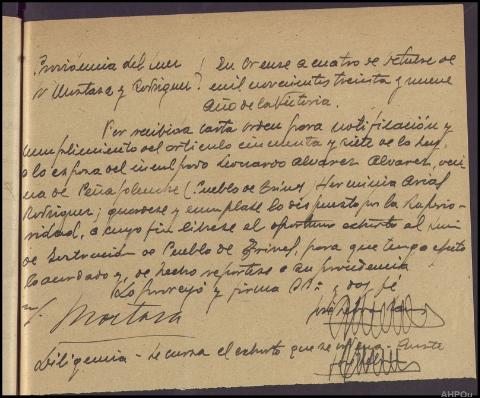 Providencia del Juez ) En Orense a cuatro de Octubre de
Sr Mostaza y Rodriguez ) mil novecientos treinta y nueve
Año de la Victoria.
Por recibida carta orden para notificación y
cumplimiento del artículo cincuenta y siete de la Ley,
a la esposa del inculpado Leonardo Alvarez Alvarez, veci
na de Peñapetada (Puebla de Trives) Herminia Arias
Rodriguez; guardese y cumplase lo dispuesto por la Superio-
ridad, a cuyo fin librese el oportuno exhorto al Juez
de Instrucción de Puebla de Trives, para que tenga efecto
lo acordado y, de hecho reportese a su procedencia
Lo proveyó y firma SSª; doy fé
Mostaza
Diligencia - Se cursa el exhorto que se ordena -
AHPOu